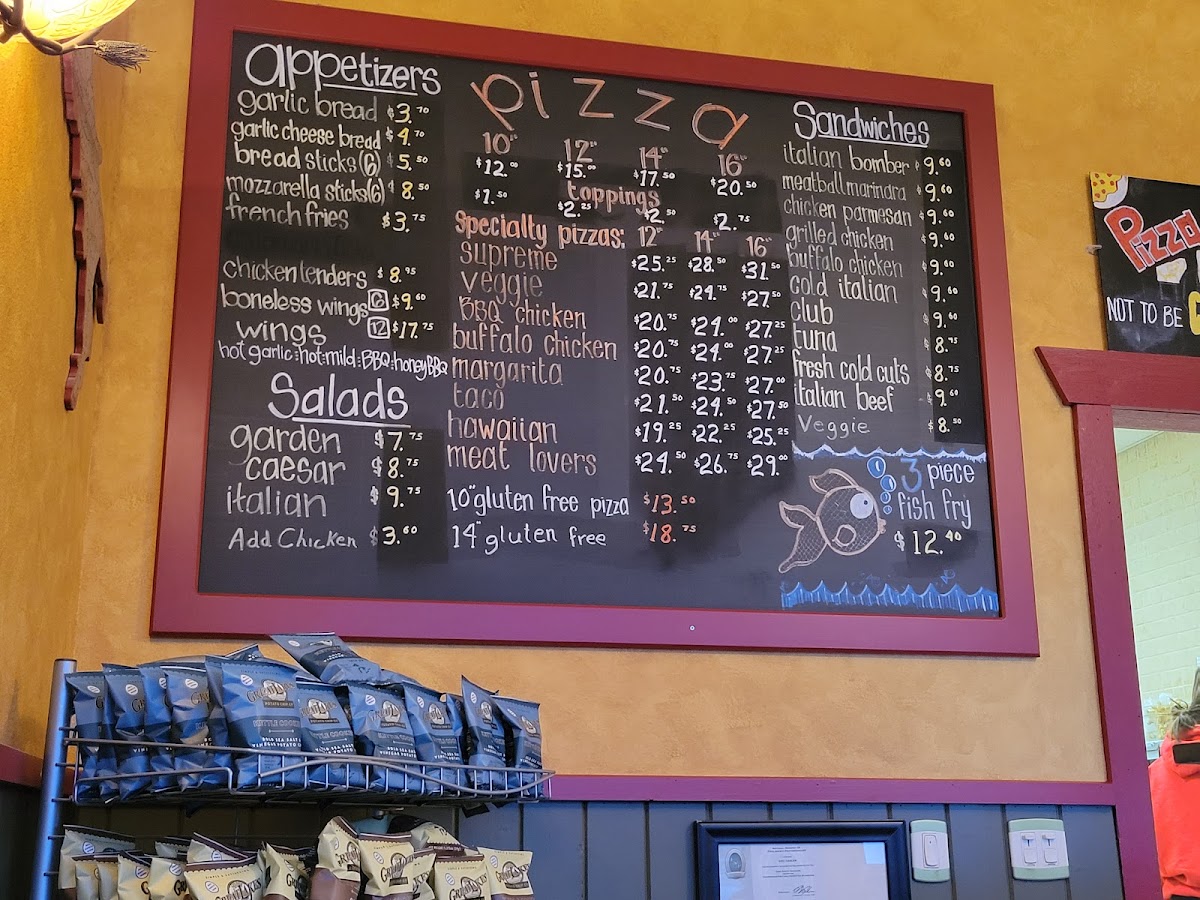 appetizers
garlic bread $3.70
garlic cheese bread $4.70
bread sticks (6) $5.50
mozzarella sticks (6) $8.50
french fries $3.75
chicken tenders $8.95
boneless wings 12 $9.60
wings 12 $17.75
hot garlic·hot·mild·BBQ·honey BBQ
Salads
garden $7.75
caesar $8.75
italian $9.75
Add Chicken $3.60
pizza
10" 12" 14" 16"
$12.00 $15.00 $17.50 $20.50
toppings
$1.50 $2.25 $2.50 $2.75
Specialty pizzas: 12" 14" 16"
supreme $25.25 $28.50 $31.50
veggie $21.75 $24.75 $27.50
BBQ chicken $20.75 $24.00 $27.25
buffalo chicken $20.75 $24.00 $27.25
margarita $20.75 $23.75 $27.00
taco $21.50 $24.50 $27.50
hawaiian $19.25 $22.25 $25.25
meat lovers $24.50 $26.75 $29.00
10" gluten free pizza $13.50
14" gluten free $18.75
Sandwiches
italian bomber $9.60
meatball marinara $9.60
chicken parmesan $9.60
grilled chicken $9.60
buffalo chicken $9.60
cold italian $9.60
club $9.60
tuna $8.75
fresh cold cuts $8.75
italian beef $9.60
Veggie $8.50
3 piece
fish fry
$12.40
Pizza
NOT TO BE
KETTLE COOKED
SEA SALT
VINEGAR POTATO